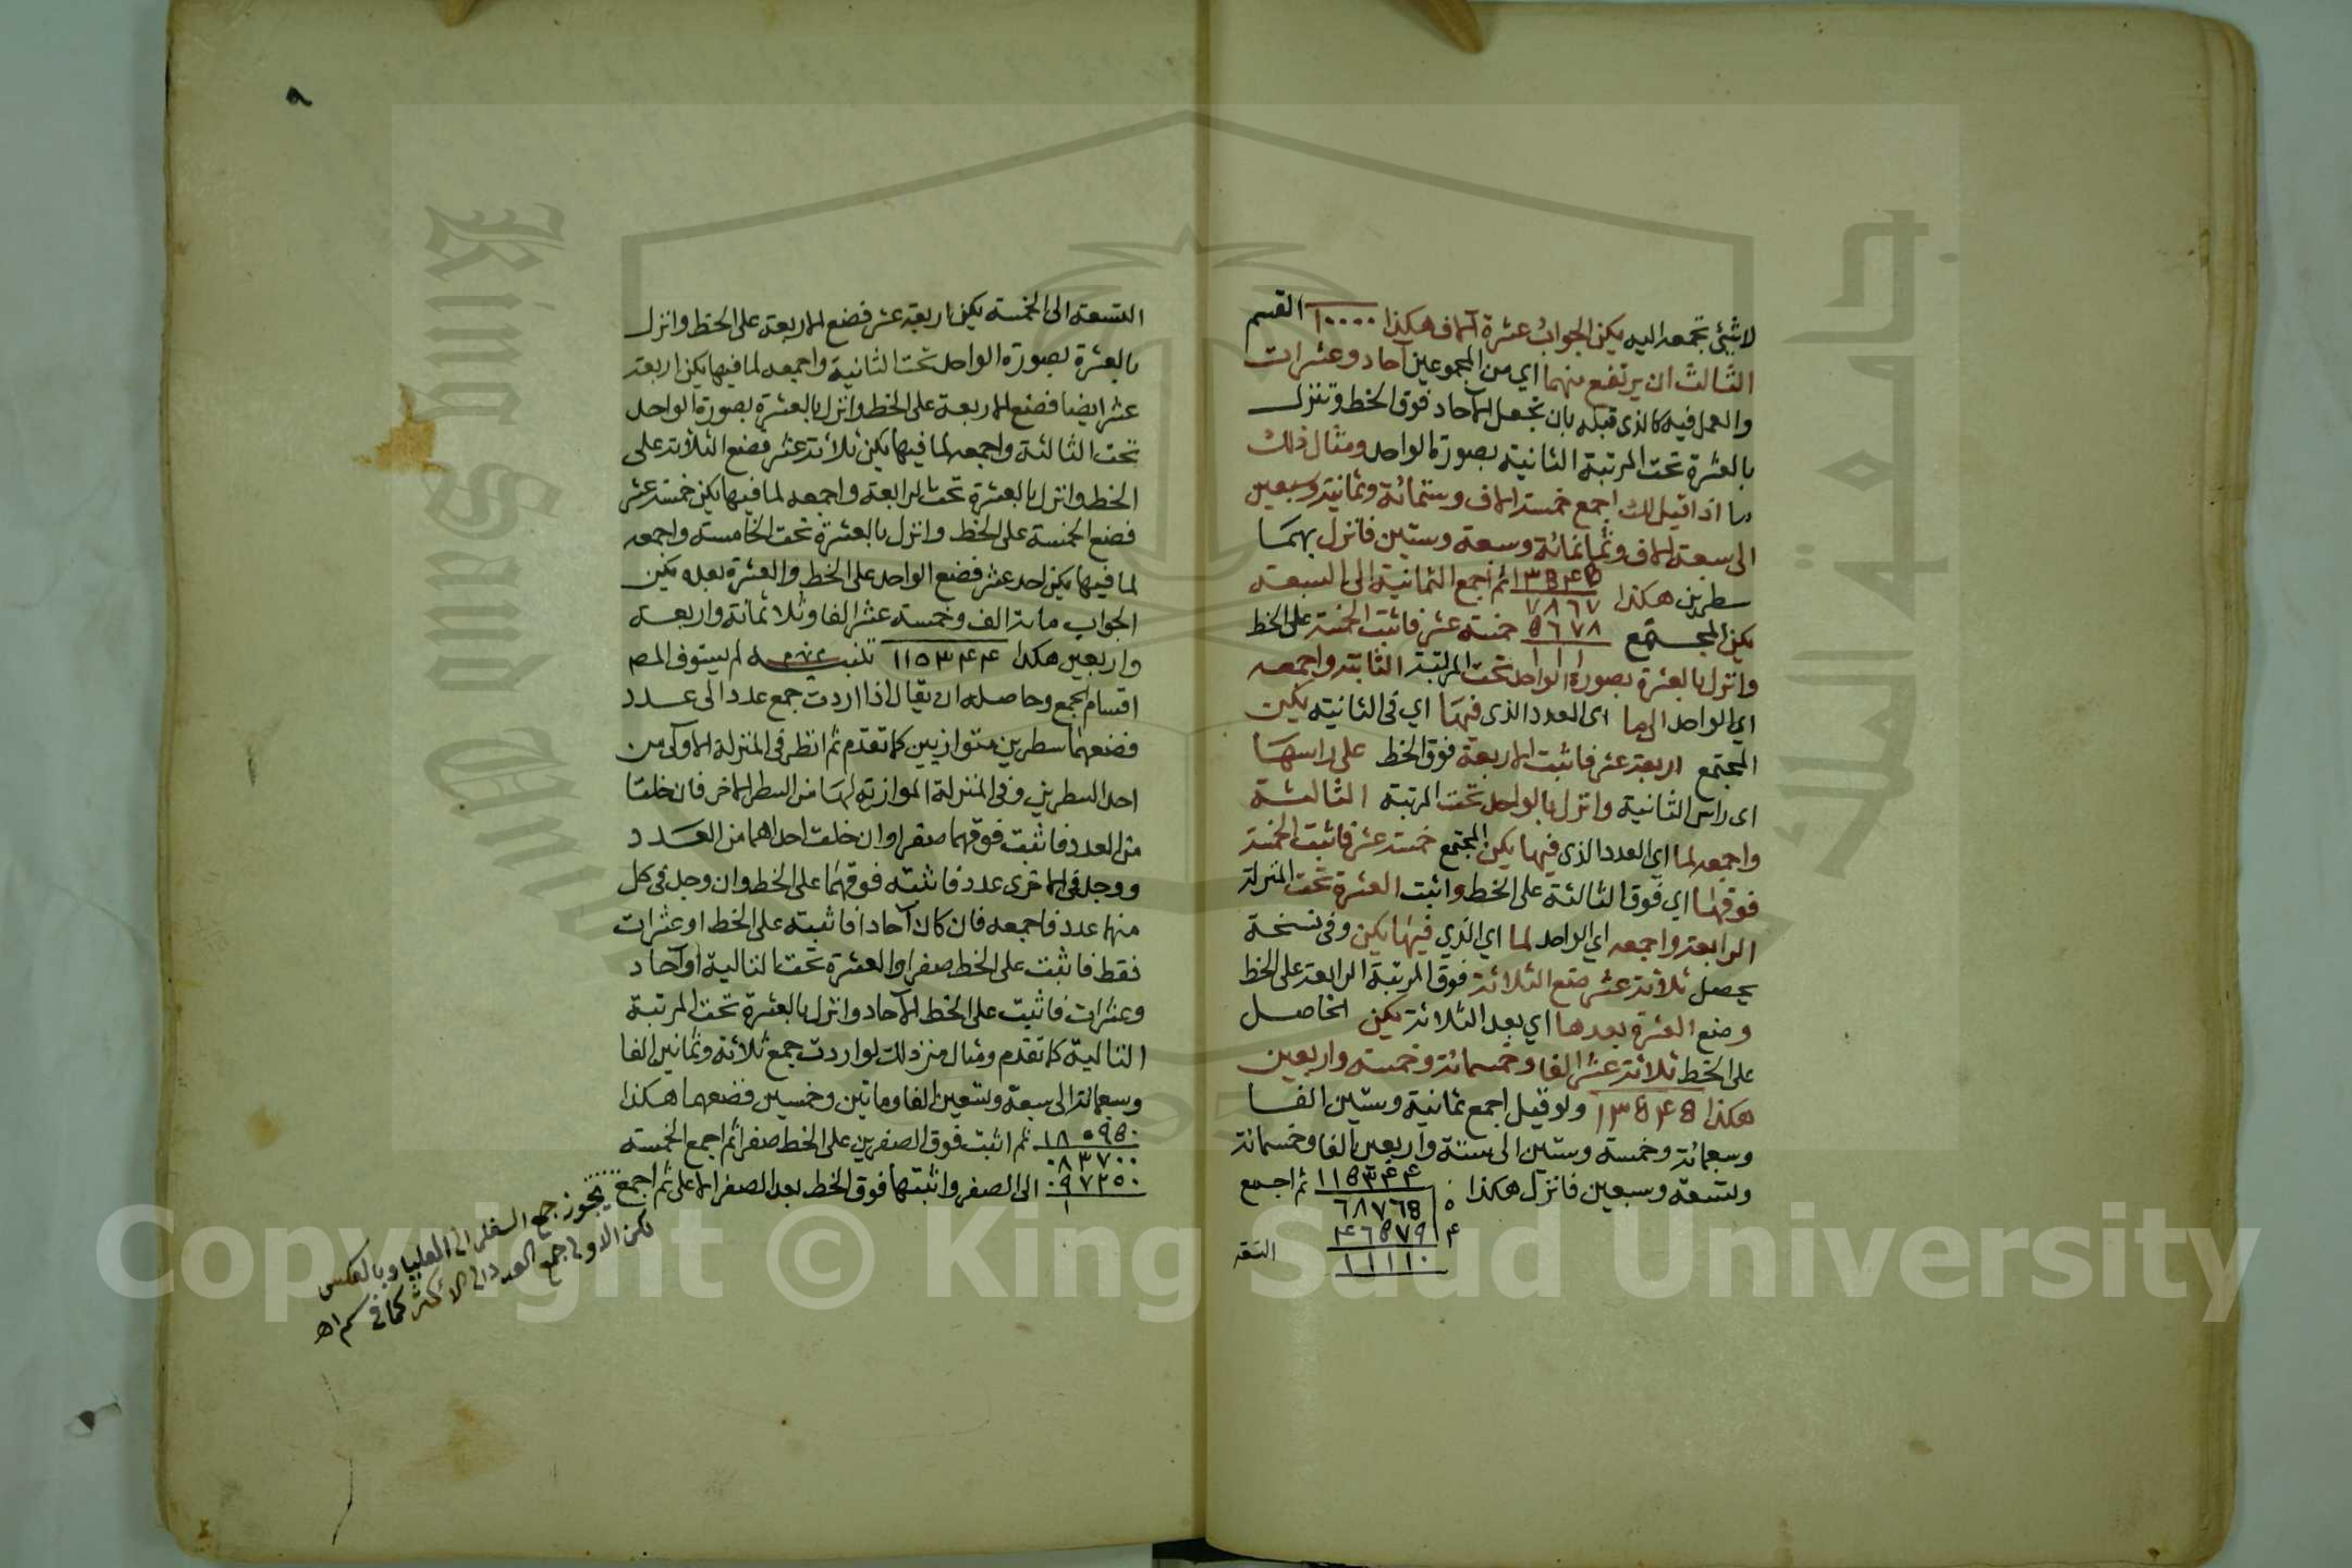 لاشيئ تجمعه اليه يكن الجواب عشرة آلاف هكذا ١٠٠٠٠ القسم
الثالث ان يرتفع منهما اي من المجموعين آحاد وعشرات
والعمل فيه كالذى قبله بان تجعل الآحاد فوق الخط وتنزل
بالعشرة تحت المرتبة الثانية بصورة الواحد ومثال ذلك
ما اذا قيل لك اجمع خمسة الاف وستمائة وثمانية وسبعين
الى سبعة الاف وثمانمائة وسبعة وستين فانزل بهما
سطرين هكذا ١٣٥٤٥ ثم اجمع الثمانية الى السبعة
٧٨٦٧
يكن المجتمع ٥٦٧٨ خمسة عشر فاثبت الخمسة على الخط
١١١
وانزل بالعشرة بصورة الواحد تحت المرتبة الثانية واجمعه
اي الواحد الى ما اى العدد الذى فيها اي فى الثانية يكن
المجتمع اربعة عشر فاثبت الاربعة فوق الخط على راسها
اى راس الثانية وانزل بالواحد تحت المرتبة الثالثة
واجمعه لما اي العدد الذى فيها يكن المجتمع خمسة عشر فاثبت الخمسة
فوقها اي فوق الثالثة على الخط واثبت العشرة تحت المنزلة
الرابعة واجمعه اي الواحد لما اي الذي فيها يكن وفى نسخة
يحصل ثلاثة عشر ضع الثلاثة فوق المرتبة الرابعة على الخط
وضع العشرة بعدها اي بعد الثلاثة يكن الحاصل
على الخط ثلاثة عشر الفا وخمسمائة وخمسة واربعين
هكذا ١٣٥٤٥ ولو قيل اجمع ثمانية وستين الفا
وسبعمائة وخمسة وستين الى ستة واربعين الفا وخمسمائة
وتسعة وسبعين فانزل هكذا ١١٥٣٤٤ ثم اجمع
٦٨٧٦٥
٤٦٥٧٩
١١١١٠
التسعة
التسعة الى الخمسة يكن اربعة عشر فضع الاربعة على الخط وانزل
بالعشرة بصورة الواحد تحت الثانية واجمعه لما فيها يكن اربعة
عشر ايضا فضع الاربعة على الخط وانزل بالعشرة بصورة الواحد
تحت الثالثة واجمعه لما فيها يكن ثلاثة عشر فضع الثلاثة على
الخط وانزل بالعشرة تحت الرابعة واجمعه لما فيها يكن خمسة عشر
فضع الخمسة على الخط وانزل بالعشرة تحت الخامسة واجمعه
لما فيها يكن احد عشر فضع الواحد على الخط والعشرة بعده يكن
الجواب مائة الف وخمسة عشر الفا وثلاثمائة واربعة
واربعين هكذا ١١٥٣٤٤ تنبيه لم يستوف المصـ
اقسام الجمع وحاصله ان يقال اذا اردت جمع عدد الى عدد
فضعهما سطرين متوازيين كما تقدم ثم انظر فى المنزلة الاولى من
احد السطرين وفى المنزلة الموازية لها من السطر الاخر فان خلتا
من العدد فاثبت فوقهما صفرا وان خلت احداهما من العدد
ووجد فى الاخرى عدد فاثبته فوقهما على الخط وان وجد فى كل
منهما عدد فاجمعه فان كان آحادا فاثبته على الخط او عشرات
فقط فاثبت على الخط صفرا والعشرة تحت التالية او آحاد
وعشرات فاثبت على الخط الآحاد وانزل بالعشرة تحت المرتبة
التالية كما تقدم ومثال من ذلك لو اردت جمع ثلاثة وثمانين الفا
وسبعمائة الى سبعة وتسعين الفا ومائتين وخمسين فضعهما هكذا
١٨٠٩٥٠ ثم اثبت فوق الصفرين على الخط صفرا ثم اجمع الخمسة
٠٨٣٧٠٠
٠٩٧٢٥٠ الى الصفر واثبتها فوق الخط بعد الصفر الاعلى ثم اجمع
١
يجوز جمع السفلى الى العليا وبالعكس
لكن الاولى جمع العدد الى الاكثر كما في اهـ